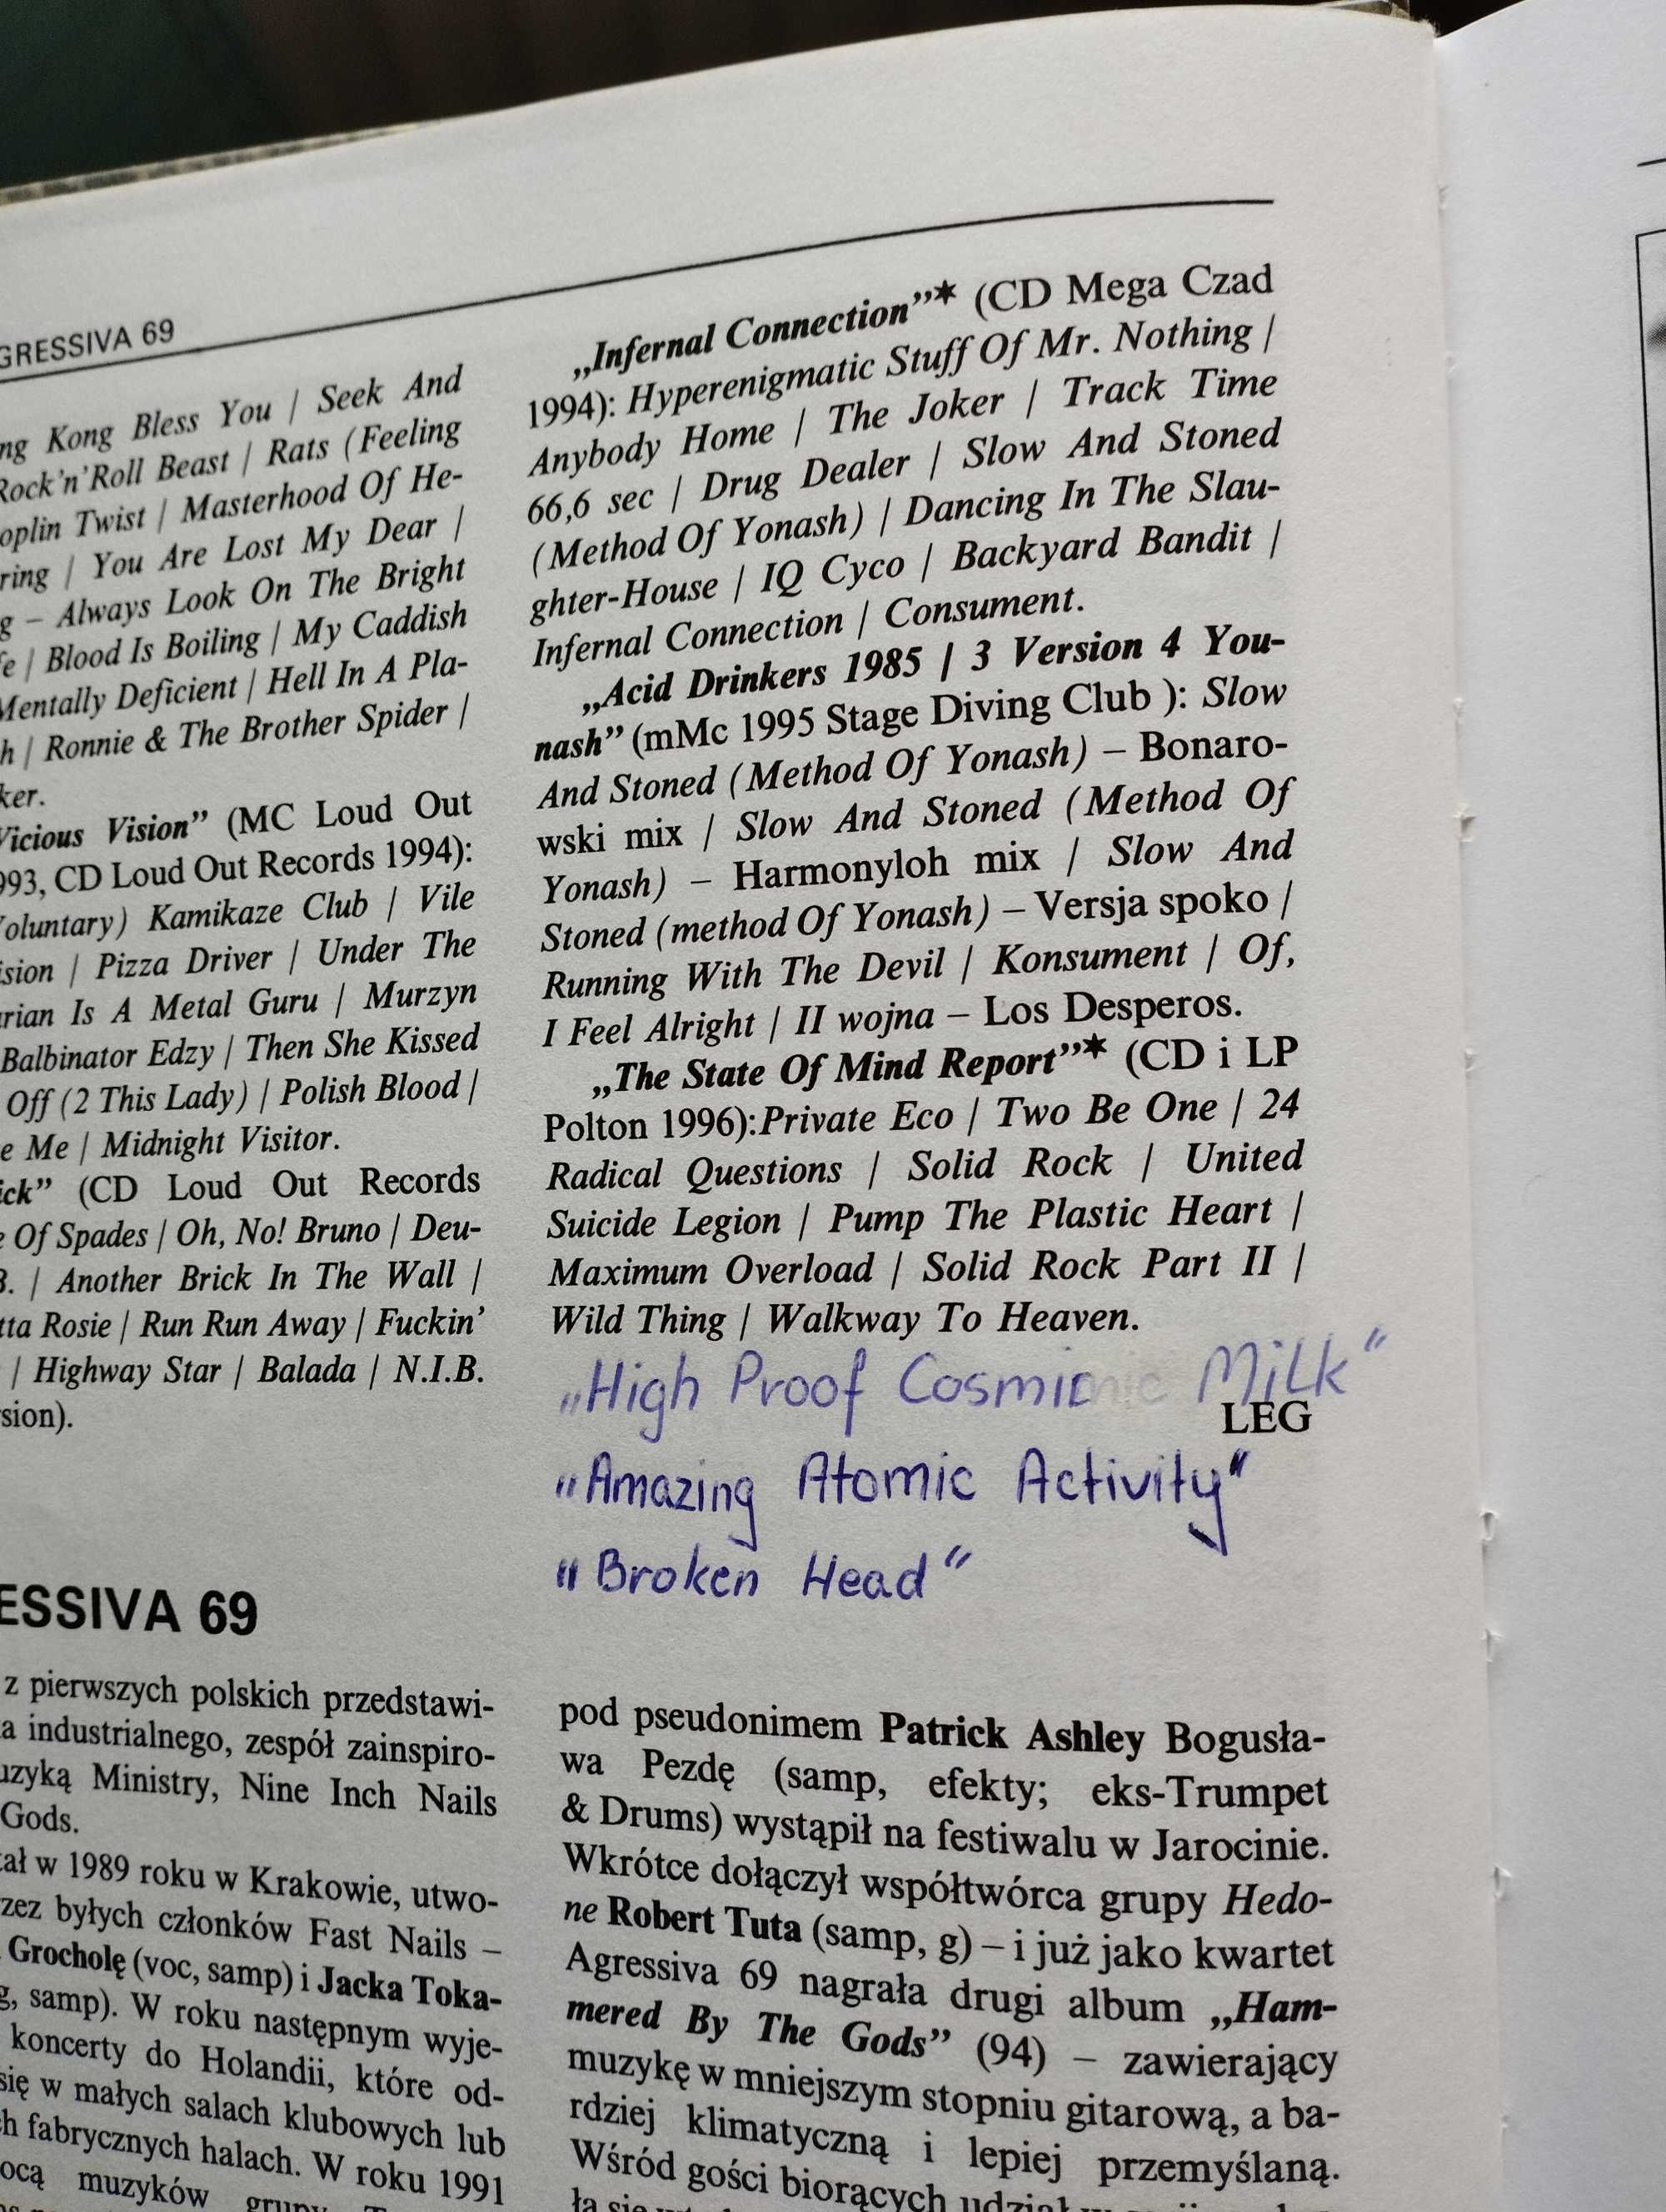 GRESSIVA 69
ng Kong Bless You | Seek And
Rock'n'Roll Beast | Rats (Feeling
oplin Twist | Masterhood Of He-
ring | You Are Lost My Dear |
g – Always Look On The Bright
fe | Blood Is Boiling | My Caddish
Mentally Deficient | Hell In A Pla-
h | Ronnie & The Brother Spider |
ker.
Vicious Vision” (MC Loud Out
993, CD Loud Out Records 1994):
Voluntary) Kamikaze Club | Vile
ision | Pizza Driver | Under The
arian Is A Metal Guru | Murzyn
Balbinator Edzy | Then She Kissed
Off (2 This Lady) | Polish Blood |
e Me | Midnight Visitor.
ick” (CD Loud Out Records
e Of Spades | Oh, No! Bruno | Deu-
B. | Another Brick In The Wall |
tta Rosie | Run Run Away | Fuckin'
| Highway Star | Balada | N.I.B.
sion).
„Infernal Connection”* (CD Mega Czad
1994): Hyperenigmatic Stuff Of Mr. Nothing |
Anybody Home | The Joker | Track Time
66,6 sec | Drug Dealer | Slow And Stoned
(Method Of Yonash) | Dancing In The Slau-
ghter-House | IQ Cyco | Backyard Bandit |
Infernal Connection | Consument.
„Acid Drinkers 1985 | 3 Version 4 You-
nash” (mMc 1995 Stage Diving Club ): Slow
And Stoned (Method Of Yonash) – Bonaro-
wski mix | Slow And Stoned (Method Of
Yonash) – Harmonyloh mix | Slow And
Stoned (method Of Yonash) – Versja spoko |
Running With The Devil | Konsument | Of,
I Feel Alright | II wojna – Los Desperos.
„The State Of Mind Report”* (CD i LP
Polton 1996):Private Eco | Two Be One | 24
Radical Questions | Solid Rock | United
Suicide Legion | Pump The Plastic Heart |
Maximum Overload | Solid Rock Part II |
Wild Thing | Walkway To Heaven.
„High Proof Cosmic Milk”
LEG
„Amazing Atomic Activity”
„Broken Head”
ESSIVA 69
z pierwszych polskich przedstawi-
a industrialnego, zespół zainspiro-
uzyką Ministry, Nine Inch Nails
Gods.
tał w 1989 roku w Krakowie, utwo-
rzez byłych członków Fast Nails –
Grocholę (voc, samp) i Jacka Toka-
g, samp). W roku następnym wyje-
koncerty do Holandii, które od-
się w małych salach klubowych lub
ch fabrycznych halach. W roku 1991
ocą muzyków grupy
pod pseudonimem Patrick Ashley Bogusła-
wa Pezdę (samp, efekty; eks-Trumpet
& Drums) wystąpił na festiwalu w Jarocinie.
Wkrótce dołączył współtwórca grupy Hedo-
ne Robert Tuta (samp, g) – i już jako kwartet
Agressiva 69 nagrała drugi album „Ham-
mered By The Gods” (94) – zawierający
muzykę w mniejszym stopniu gitarową, a ba-
rdziej klimatyczną i lepiej przemyślaną.
Wśród gości biorących udział w
ła się